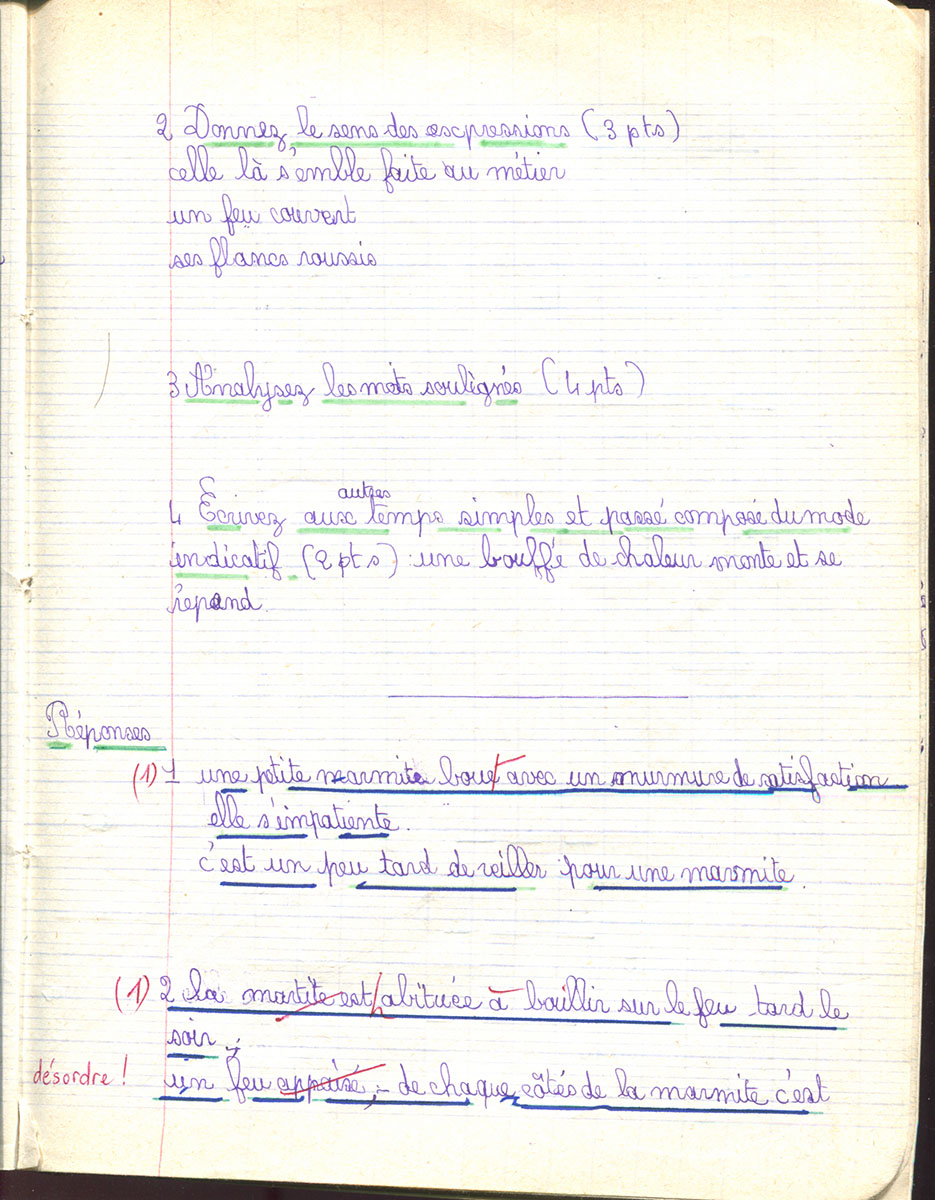 2 Donnez le sens des expressions (3 pts)
celle là s'emble faite au métier
un feu couvert
ses flancs roussis
3 Analysez les mots soulignés (4 pts)
autres
4 Ecrivez aux temps simples et passé composé du mode
indicatif. (2 pts) : une bouffé de chaleur monte et se
répand.
Réponses
(1) 1 une petite marmite bout avec un murmure de satisfaction
elle s'impatiente.
c'est un peu tard de veiller pour une marmite.
(1) 2 la martite est habituée à bouillir sur le feu tard le
soir.
désordre ! un feu appaisé, - de chaque côtés de la marmite c'est